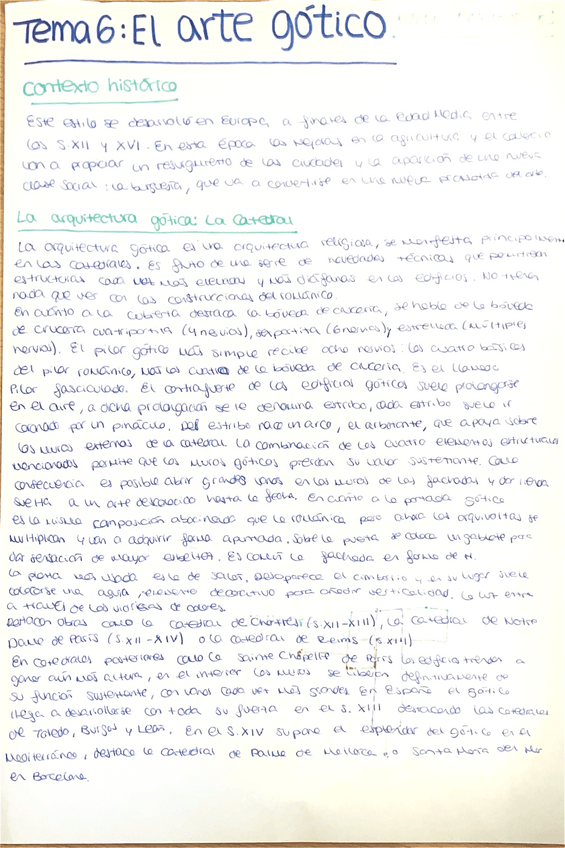 Tema 6: El arte gótico.
Contexto histórico
Este estilo se desarrolló en Europa, a finales de la Edad Media, entre
los S.XII y XVI. En esta época las mejoras en la agricultura y el comercio
van a propiciar un resurgimiento de las ciudades y la aparición de una nueva
clase social: la burguesía, que va a convertirse en una nueva promotora del arte.
La arquitectura gótica: La Catedral
La arquitectura gótica es una arquitectura religiosa, se manifiesta principalmente
en las catedrales. Es fruto de una serie de novedades técnicas que permitirán
estructuras cada vez más elevadas y más diáfanas en los edificios. No tiene
nada que ver con las construcciones del románico.
En cuanto a la cubierta destaca la bóveda de crucería, se habla de la bóveda
de crucería cuatripartita (4 nervios), sexpartita (6 nervios) y estrellada (múltiples
nervios). El pilar gótico más simple recibe ocho nervios: los cuatro básicos
del pilar románico, más los cuatro de la bóveda de crucería. Es el llamado
Pilar fasciculado. El contrafuerte de los edificios góticos suele prolongarse
en el aire, a dicha prolongación se le denomina estribo, cada estribo suele ir
coronado por un pináculo. Del estribo nace un arco, el arbotante, que apoya sobre
los muros externos de la catedral. La combinación de los cuatro elementos estructurales
mencionados permite que los muros góticos pierdan su valor sustentante. Como
consecuencia es posible abrir grandes vanos en los muros de las fachadas y dar rienda
suelta a un arte desconocido hasta la fecha. En cuanto a la portada gótica
es la misma composición abocinada que la románica pero ahora las arquivoltas se
multiplican y van a adquirir forma apuntada. Sobre la puerta se coloca un gablete para
dar sensación de mayor esbeltez. Es común la fachada en forma de H.
La planta más usada es la de salón. Desaparece el cimborrio y en su lugar suele
colocarse una aguja elemento decorativo para añadir verticalidad. La luz entra
a través de las vidrieras de colores.
Destacan obras como la catedral de Chartres (S.XII-XIII), la catedral de Notre
Dame de París (S.XII-XIV) o la catedral de Reims (S.XIII)
En catedrales posteriores como la Sainte Chapelle de París los edificios tienden a
ganar aún más altura, en el interior los muros se liberan definitivamente de
su función sustentante, con vanos cada vez más grandes. En España el gótico
llega a desarrollarse con toda su fuerza en el S. XIII destacando las catedrales
de Toledo, Burgos y León. En el S.XIV supone el esplendor del gótico en el
Mediterráneo, destaca la catedral de Palma de Mallorca o Santa María del Mar
en Barcelona.